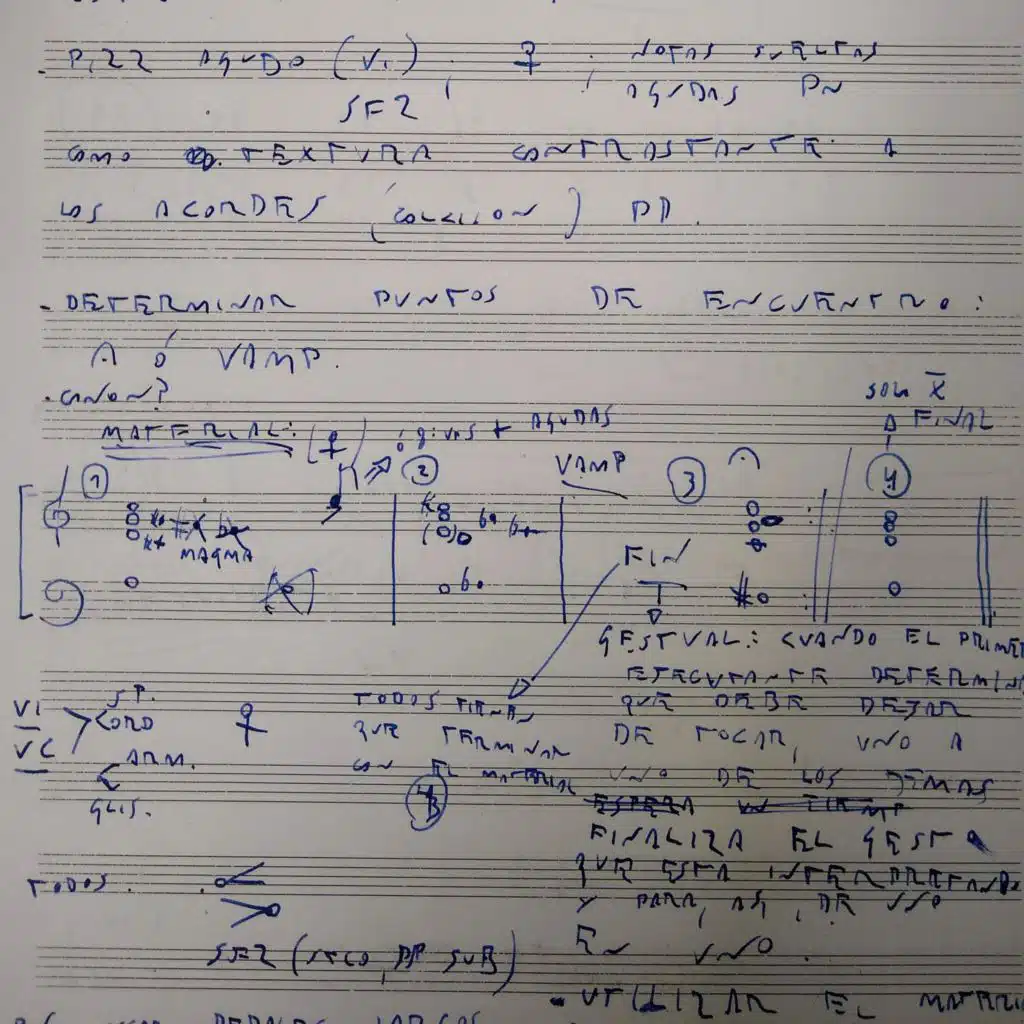 . PIZZ AGUDO (VI) , ; NOTAS SUELTAS
SFZ AGUDAS PN
COMO TEXTURA CONTRASTANTE A
LOS ACORDES (COLCHON) PP.
. DETERMINAR PUNTOS DE ENCUENTRO:
A Ó VAMP.
. CANON?
SOLO X
A FINAL
MATERIAL: + AGUDAS
1 2 VAMP 3 4
MAGMA
FIN
GESTUAL: CUANDO EL PRIMER
EJECUTANTE DETERMINA
QUE DEBE DEJAR
DE TOCAR, UNO A
UNO DE LOS DEMAS
ESPERA UN TIEMP
FINALIZA EL GESTO
QUE ESTA INTERPRETANDO
Y PARA, ASI, DE UNO
EN UNO.
TODOS TIENEN
QUE TERMINAR
CON EL MATERIAL
4B
VI
VC
SP.
CORD
ARM.
GLIS.
TODOS.
SFZ (SECO, PP SUB)
- UTILIZAR EL MATERIAL
PEDALES LARGOS